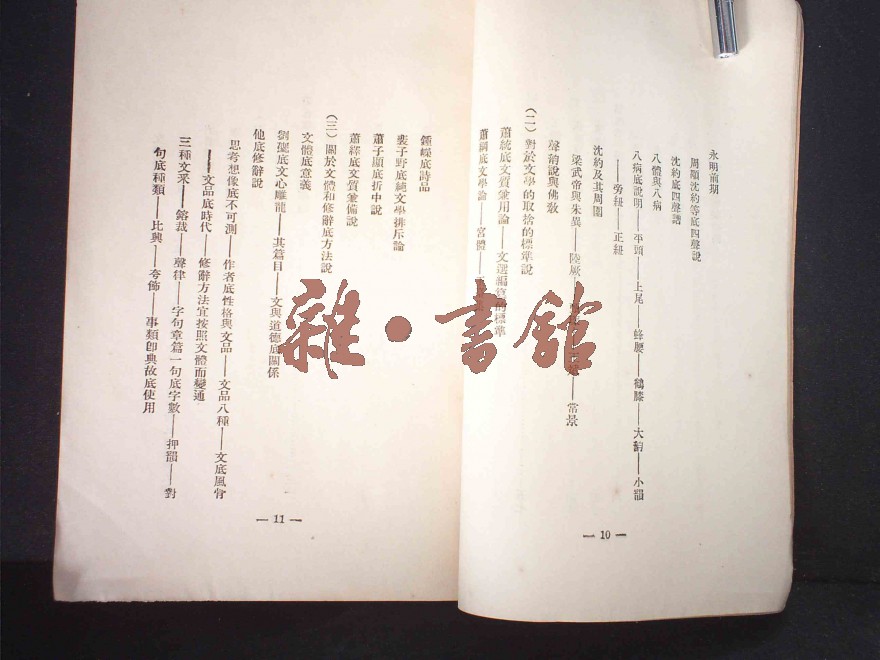 永明前期
周顒沈約等底四聲說
沈約底四聲譜
八體與八病
八病底說明——平頭——上尾——蜂腰——鶴膝——大韻——小韻
——旁紐——正紐
沈約及其周圍
梁武帝與朱异——陸厥——常景
聲韻說與佛教
(二)對於文學的取捨的標準說
蕭統底文質兼用論——文選編纂的標準
蕭綱底文學論——宮體——
— 10 —
鍾嶸底詩品
裴子野底純文學排斥論
蕭子顯底折中說
蕭繹底文質兼備說
(三)關於文體和修辭底方法說
文體底意義
劉勰底文心雕龍——其篇目——文與道德底關係
他底修辭說
思考想像底不可測——作者底性格與文品——文品八種——文底風骨
——文品底時代——修辭方法宜按照文體而變通
三種文采——鎔裁——聲律——字句章篇——句底字數——押韻——對
句底種類——比興——夸飾——事類卽典故底使用
— 11 —
雜·書館